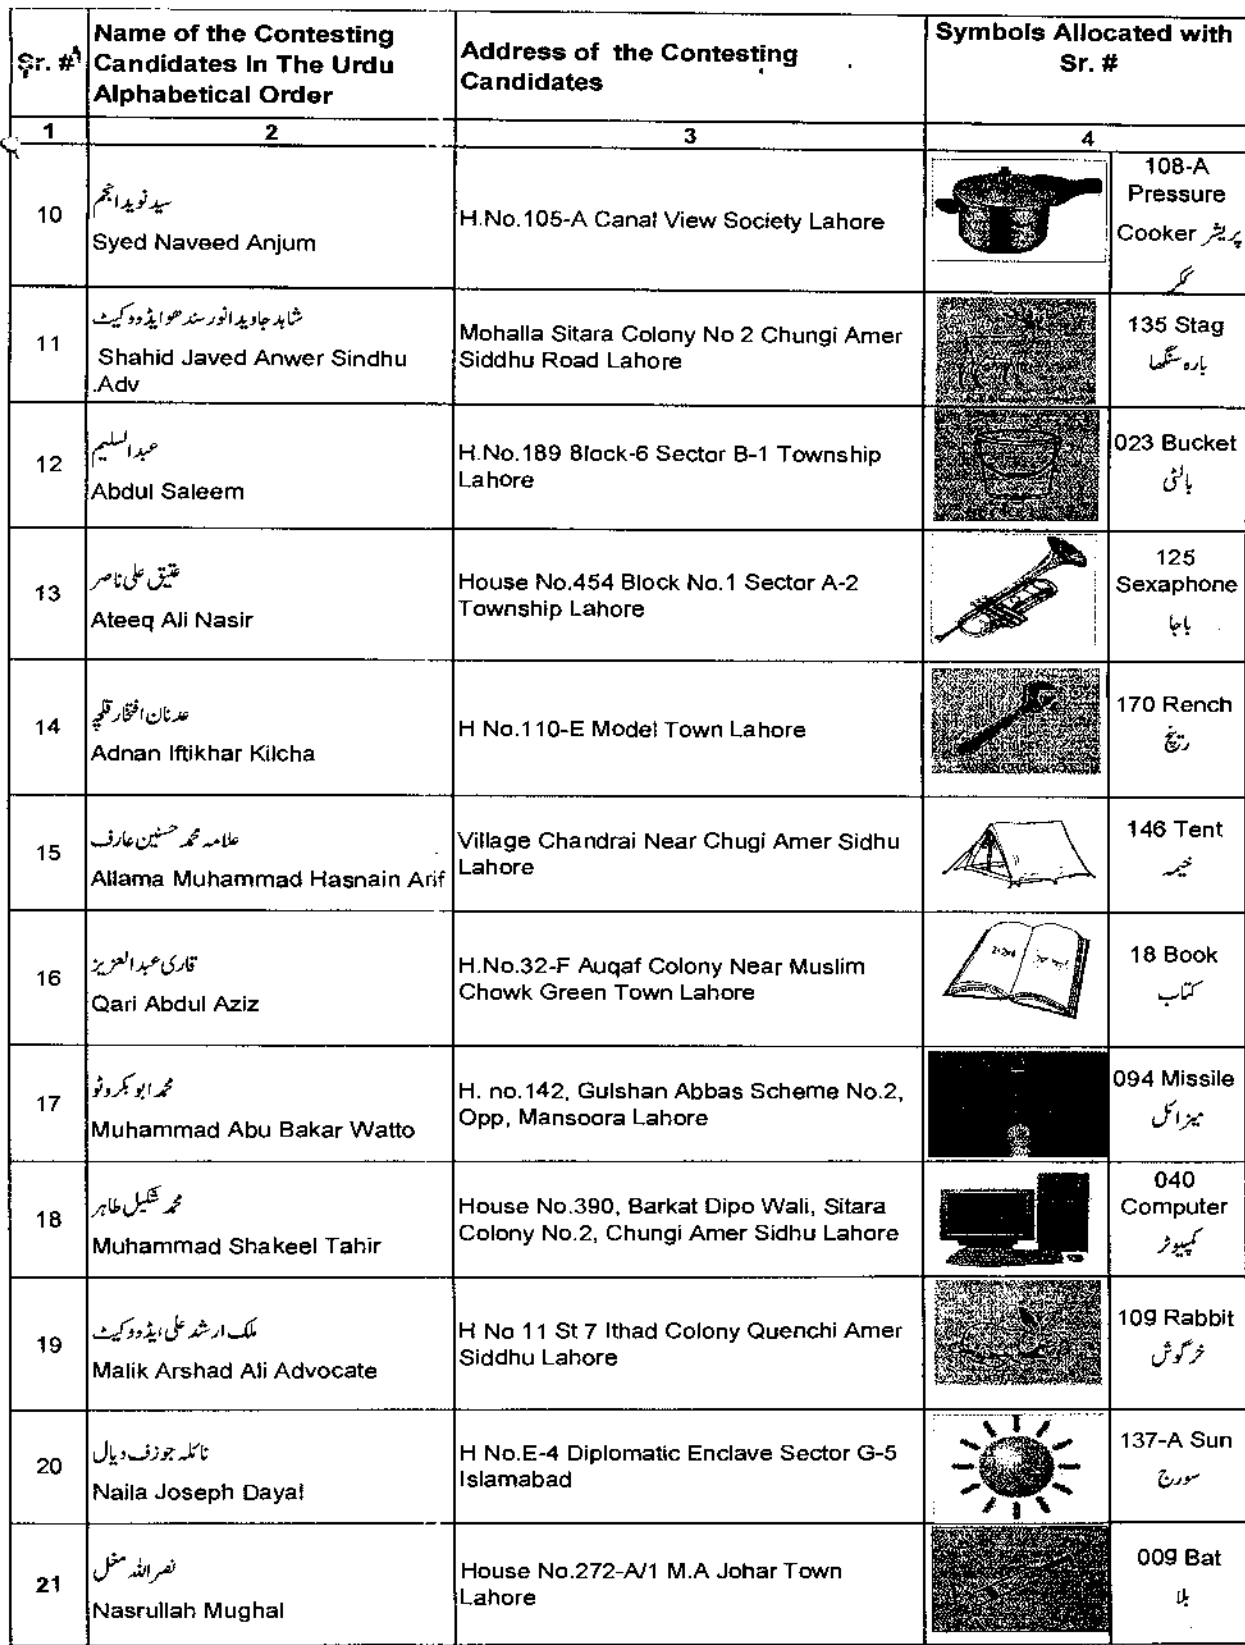 Sr. #
Name of the Contesting
Candidates In The Urdu
Alphabetical Order
Address of the Contesting
Candidates
Symbols Allocated with
Sr. #
1
2
3
4
10
سید نوید انجم
Syed Naveed Anjum
H.No.105-A Canal View Society Lahore
108-A
Pressure
Cooker پریشر
ککر
11
شاہد جاوید انور سندھو ایڈووکیٹ
Shahid Javed Anwer Sindhu
.Adv
Mohalla Sitara Colony No 2 Chungi Amer
Siddhu Road Lahore
135 Stag
بارہ سنگھا
12
عبدالسلیم
Abdul Saleem
H.No.189 Block-6 Sector B-1 Township
Lahore
023 Bucket
بالٹی
13
عتیق علی ناصر
Ateeq Ali Nasir
House No.454 Block No.1 Sector A-2
Township Lahore
125
Sexaphone
باجا
14
عدنان افتخار قلچہ
Adnan Iftikhar Kilcha
H No.110-E Model Town Lahore
170 Rench
رینچ
15
علامہ محمد حسنین عارف
Allama Muhammad Hasnain Arif
Village Chandrai Near Chugi Amer Sidhu
Lahore
146 Tent
خیمہ
16
قاری عبدالعزیز
Qari Abdul Aziz
H.No.32-F Auqaf Colony Near Muslim
Chowk Green Town Lahore
18 Book
کتاب
17
محمد ابو بکر وٹو
Muhammad Abu Bakar Watto
H. no.142, Gulshan Abbas Scheme No.2,
Opp, Mansoora Lahore
094 Missile
میزائل
18
محمد شکیل طاہر
Muhammad Shakeel Tahir
House No.390, Barkat Dipo Wali, Sitara
Colony No.2, Chungi Amer Sidhu Lahore
040
Computer
کمپیوٹر
19
ملک ارشد علی ایڈووکیٹ
Malik Arshad Ali Advocate
H No 11 St 7 Ithad Colony Quenchi Amer
Siddhu Lahore
109 Rabbit
خرگوش
20
نائلہ جوزف دیال
Naila Joseph Dayal
H No.E-4 Diplomatic Enclave Sector G-5
Islamabad
137-A Sun
سورج
21
نصراللہ مغل
Nasrullah Mughal
House No.272-A/1 M.A Johar Town
Lahore
009 Bat
بلا